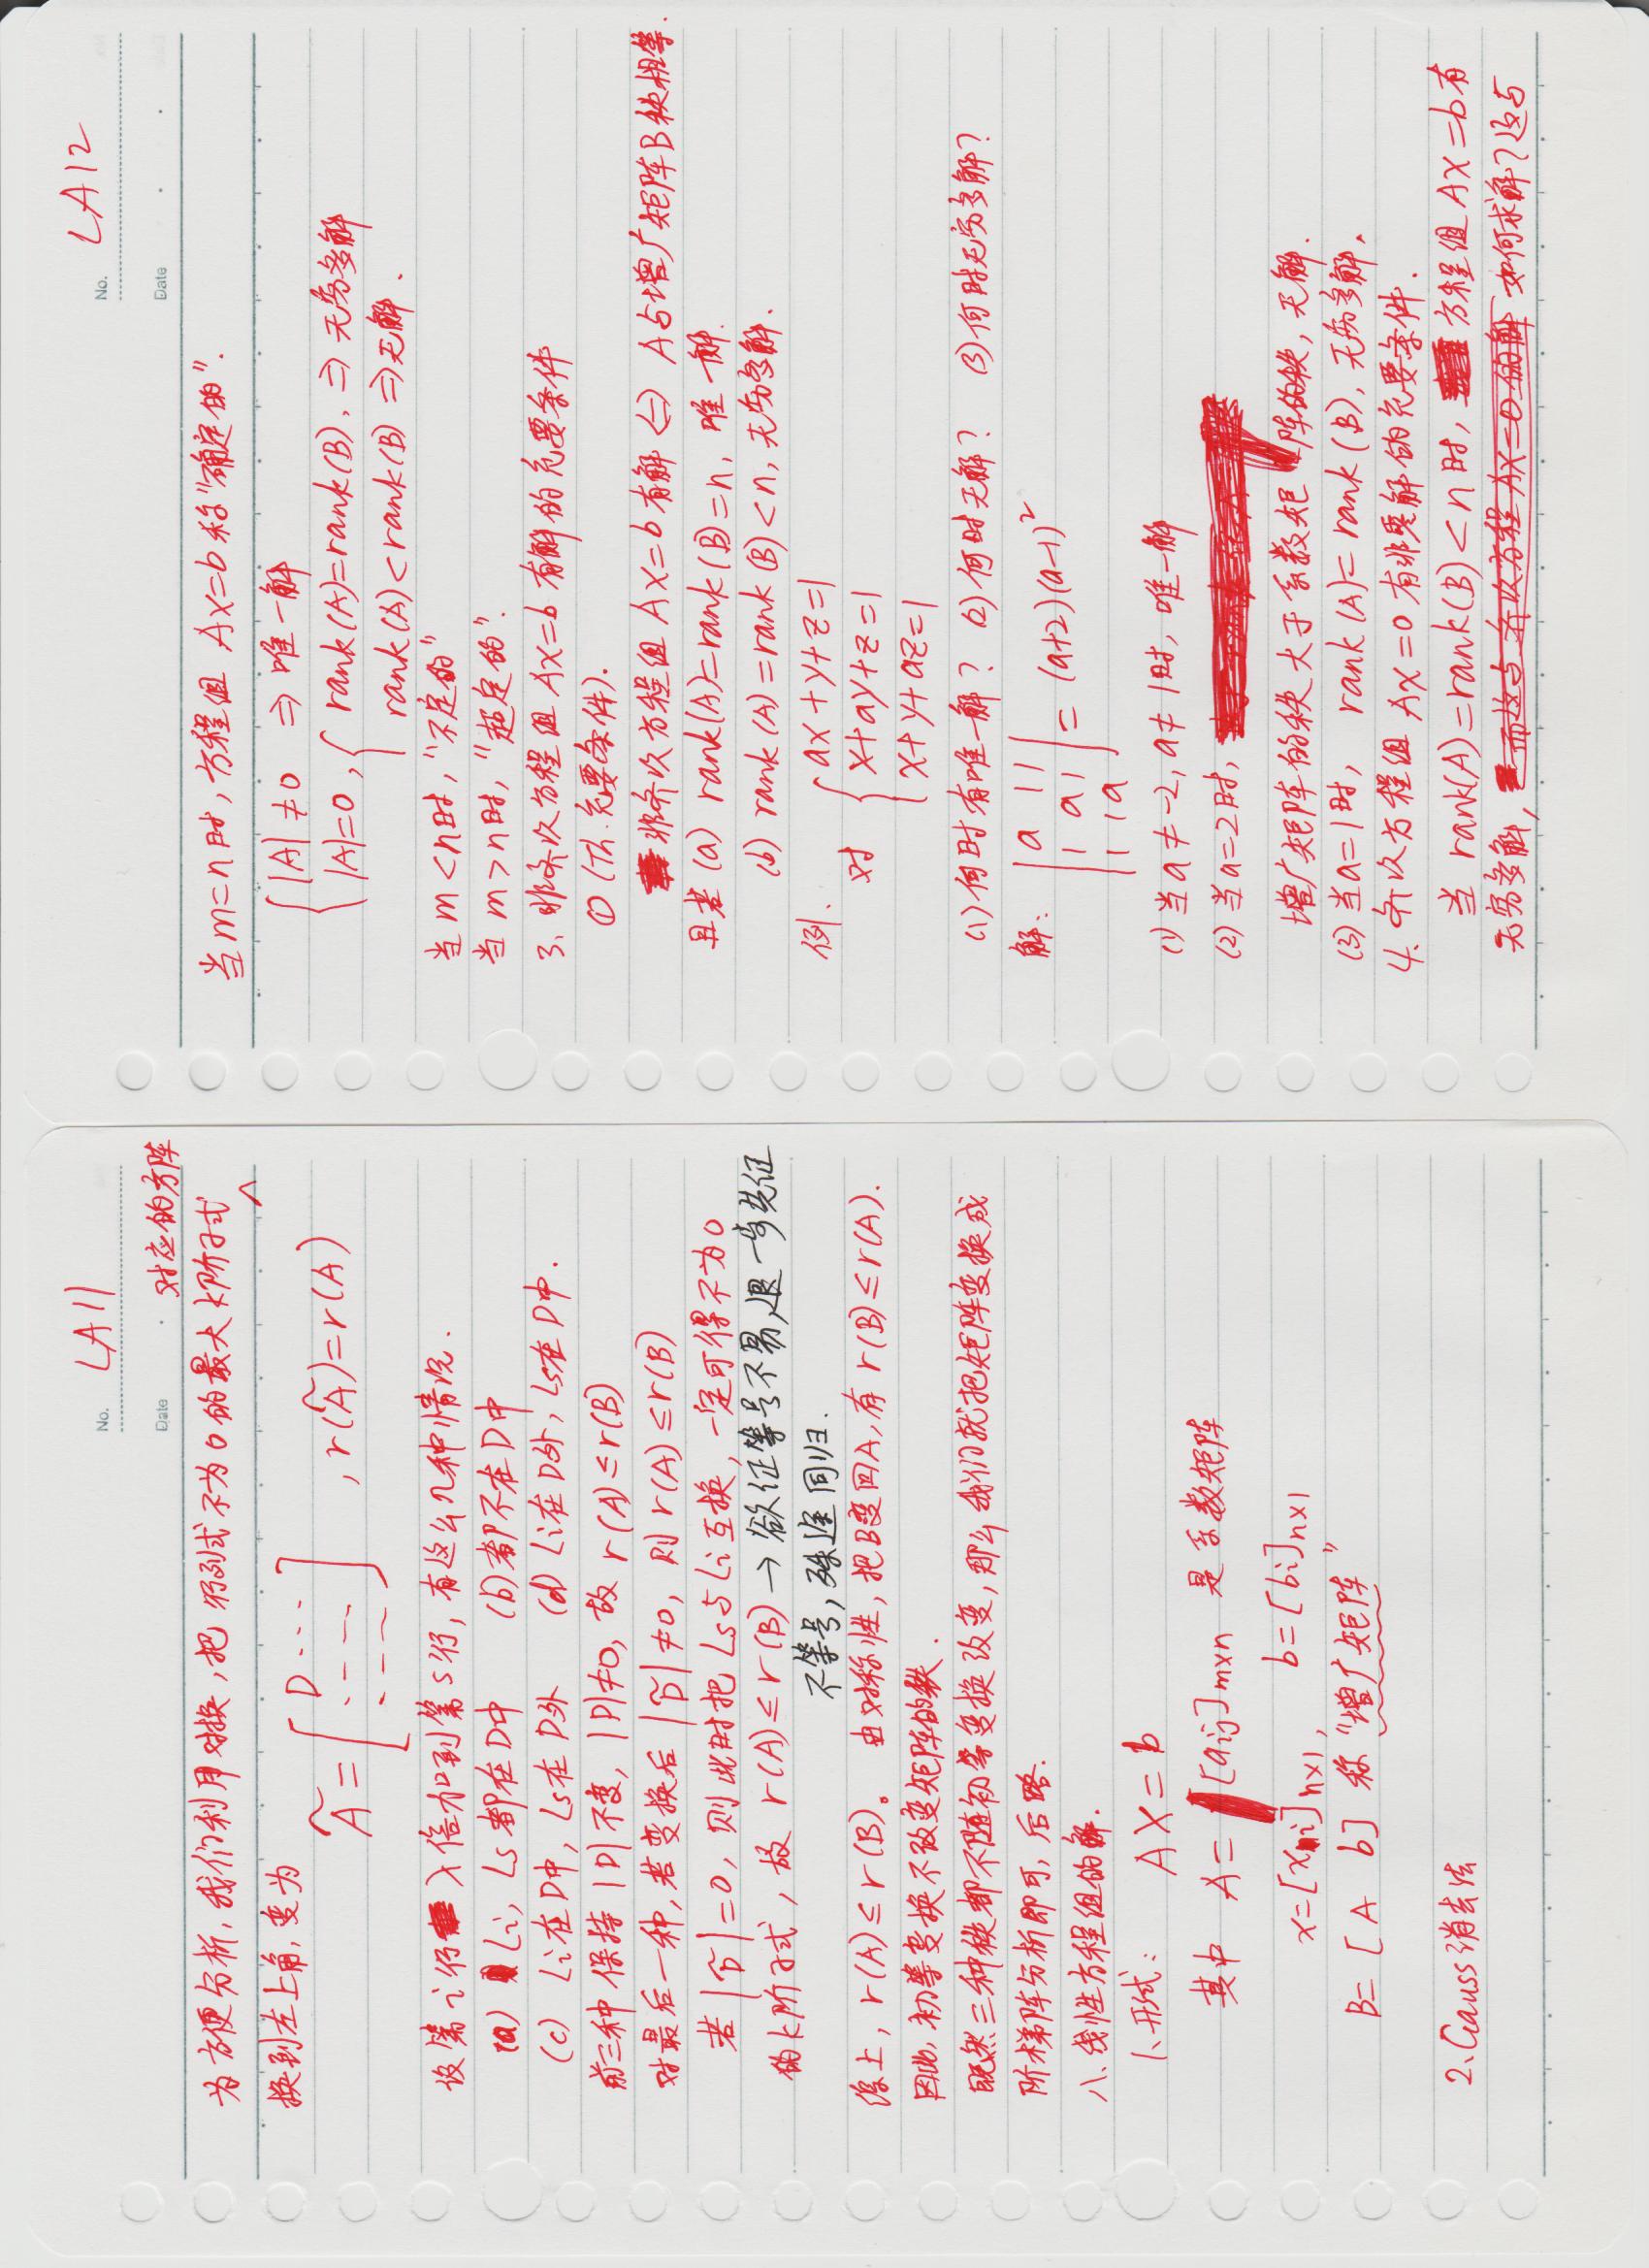 No. LA11
Date
对应的方阵
为方便分析,我们利用对换,把 行列式不为0的最大k阶子式
∧
换到左上角,变为
Ã = [D ··· ·--- ·---] , r(Ã)=r(A)
设第i行 λ倍加到第s行,有这么几种情况.
(a) Li, Ls都在D中 (b)都不在D中
(c) Li在D中, Ls在D外 (d) Li在D外, Ls在D中.
前三种 保持 |D| 不变, |D|≠0, 故 r(A)≤r(B)
对最后一种,若变换后 |D̃|≠0, 则 r(A)≤r(B)
若 |D̃|=0, 则此时把 Ls与Li互换, 一定可得不为0
的k阶子式, 故 r(A)≤r(B) → 欲证等号不易,退一步先证
不等号,殊途同归.
综上, r(A)≤r(B)。 由对称性,把B变回A,有 r(B)≤r(A).
因此,初等变换不改变矩阵的秩.
既然三种秩都不随初等变换改变,那么我们就把矩阵变换成
阶梯阵分析即可, 后略.
八、线性方程组的解.
1、形式: AX=b
其中 A= [aij]m×n 是系数矩阵
x=[xi]n×1, b=[bi]n×1
B=[A b] 称“增广矩阵”
2、Gauss消去法
No. LA12
Date
当m=n时,方程组 Ax=b 称“确定的”.
|A|≠0 ⇒ 唯一解
|A|=0, { rank(A)=rank(B). ⇒ 无穷多解
rank(A)<rank(B) ⇒无解.
当m<n时,“不定的”
当m>n时,“超定的”.
3、非齐次方程组 Ax=b 有解的充要条件
① (Th.充要条件).
非齐次方程组 Ax=b 有解 ⇔ A与增广矩阵B秩相等.
且若 (a) rank(A)=rank(B)=n, 唯一解.
(b) rank(A)=rank(B)<n, 无穷多解.
例.
对 { ax+y+z=1
x+ay+z=1
x+y+az=1
(1)何时有唯一解? (2)何时无解? (3)何时无穷多解?
解: |a 1 1
1 a 1
1 1 a| = (a+2)(a-1)²
(1)当a≠-2, a≠1时, 唯一解
(2)当a=2时,
增广矩阵的秩大于系数矩阵的秩, 无解.
(3)当a=1时, rank(A)=rank(B), 无穷多解.
4、齐次方程组 Ax=0 有非零解的充要条件.
当 rank(A)=rank(B)<n时, 方程组 Ax=b有
无穷多解, 而这与齐次方程Ax=0的解 如何求解?这与